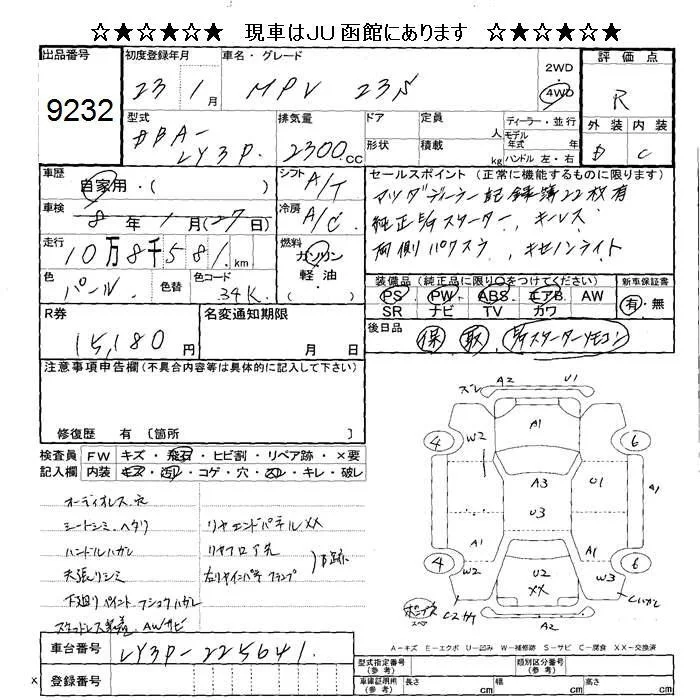 ☆★☆★☆★ 現車はJU函館にあります ☆★☆★☆★
出品番号 初度登録年月 車名・グレード 評価点
9232 23 / 1月 MPV 23S 2WD 4WD R
型式 排気量 ドア 定員 人 ディーラー・並行 外装 内装
DBA-LY3P. 2300.CC 形状 積載 kg モデル年式 年式 ハンドル 左・右 D C
車歴 自家用・( ) シフト A/T セールスポイント(正常に機能するものに限ります)
車検 8年1月(27日) 冷房 A/C マツダディーラー記録簿22枚有
純正E/gスターター、キーレス
走行 10万8千581.km 燃料 ガソリン 軽油 ( ) 両側パワスラ、キセノンライト
色 パール. 色替 色コード 34K.
装備品(純正品に限り○をつけてください) 新車保証書
PS PW ABS エアB AW 有・無
SR ナビ TV カワ
R券 15,180円 名変通知期限 月 日
後日品 保 取 E/gスターターリモコン
注意事項申告欄(不具合内容等は具体的に記入して下さい)
修復歴 有 〔箇所 〕
検査員 FW キズ・飛石・ヒビ割・リペア跡・×要
記入欄 内装 キズ・汚れ・コゲ・穴・スレ・キレ・破レ
オーディオレス.衣
シートシミ.ヘタリ リヤエンドパネルXX
ハンドルハガレ リヤフロア先
天張リシミ 左リヤインパネ
下廻りペイント フショウハガレ
スタッドレス装着 AWサビ
ズレ A2 U1
A1
4 W2 6
A3 U1 A1
U3
A1 A1
4 W2 U2 XX W3 6
A2
A-キズ E-エクボ U-凹み W-補修跡 S-サビ C-腐食 XX-交換済
車台番号 LY3P-225641.
登録番号
型式指定番号(参考) 類別区分番号(参考)
車庫証明用(参考) 長さ cm 幅 cm 高さ cm